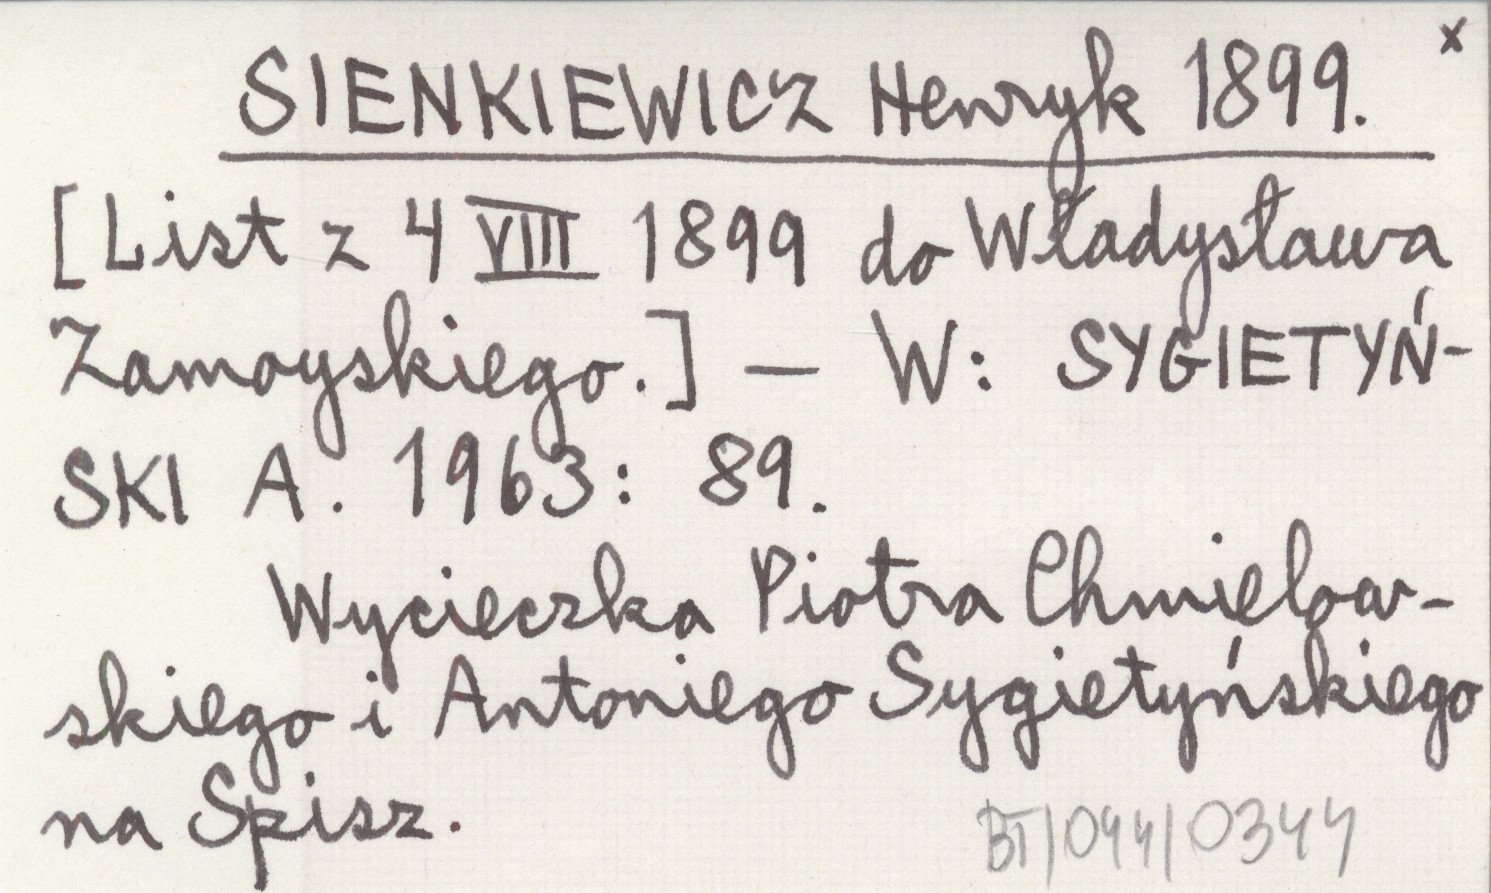 x
SIENKIEWICZ Henryk 1899.
[List z 4 VIII 1899 do Władysława
Zamoyskiego.] — W: SYGIETYŃ-
SKI A. 1963: 89.
Wycieczka Piotra Chmielow-
skiego i Antoniego Sygietyńskiego
na Spisz.
BT/044/0344